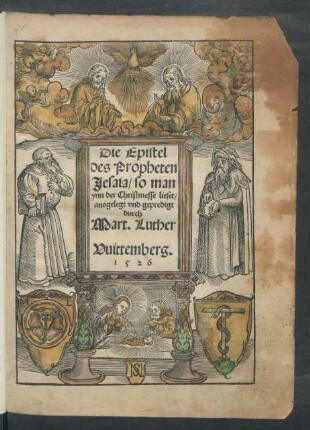 Die Epistel
des Propheten
Jesaia/ so man
ynn der Christmesse lieset/
ausgelegt vnd gepredigt
durch
Mart. Luther
Vuittemberg.
1526